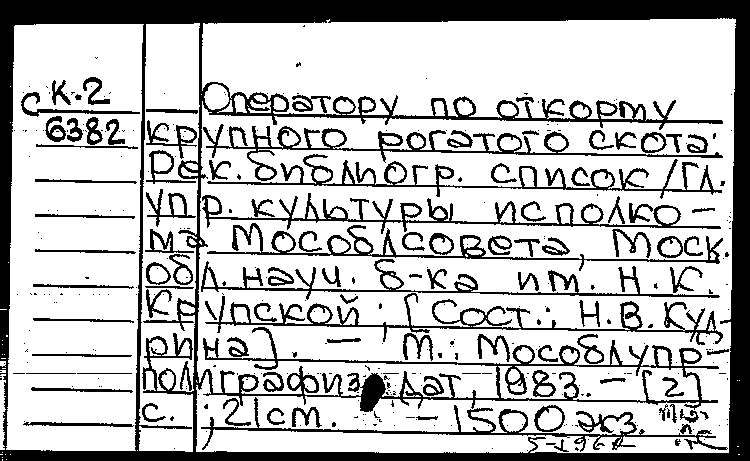 С К.2 Оператору по откорму
6382 крупного рогатого скота:
Рек. библиогр. список / Гл.
упр. культуры исполко-
ма Мособлсовета, Моск.
обл. науч. б-ка им. Н.К.
Крупской ; [Сост.: Н.В. Кул-
рина]. - М.: Мособлупр-
полиграфиздат, 1983. - [2]
с. ; 21 cm. - 1500 экз.